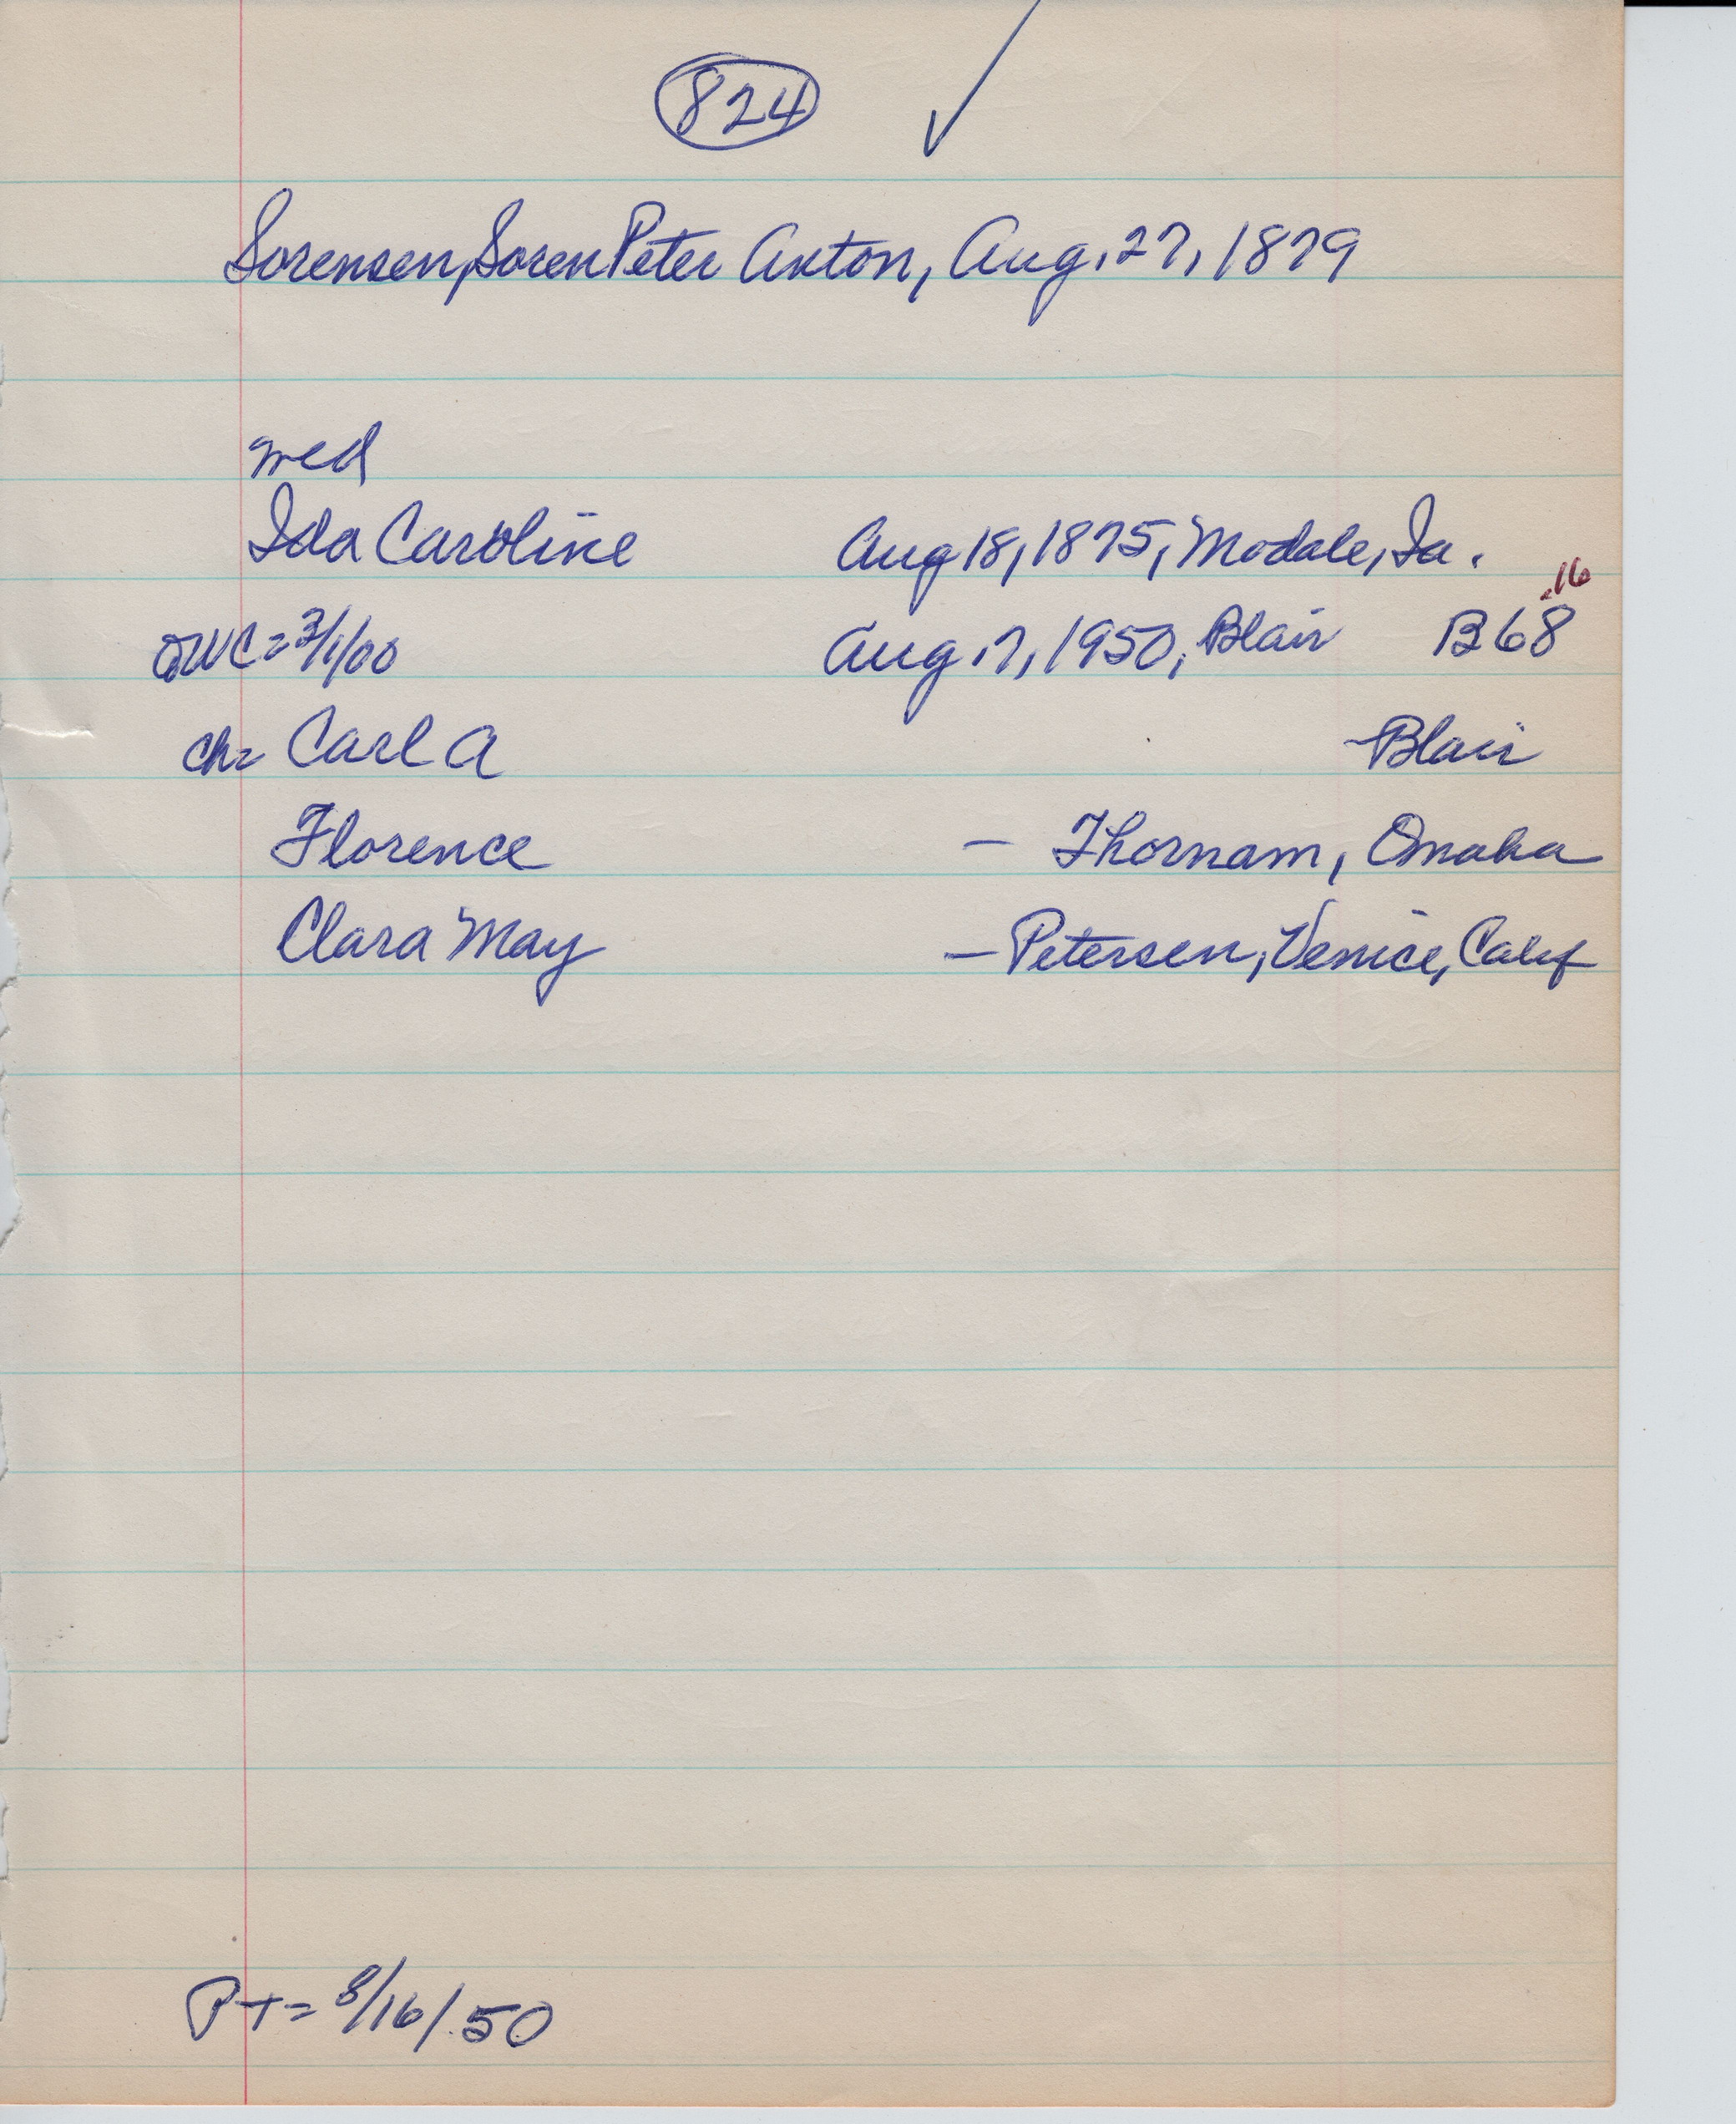 824 ✓
Sorensen, Soren Peter Anton, Aug. 27, 1879
med
Ida Caroline Aug 18, 1875, Modale, Ia.
.16
DWC = 3/1/00 Aug. 7, 1950, Blair B68
ch= Carl A Blair
Florence — Thornam, Omaha
Clara May — Petersen, Venice, Calif
PT = 8/16/50